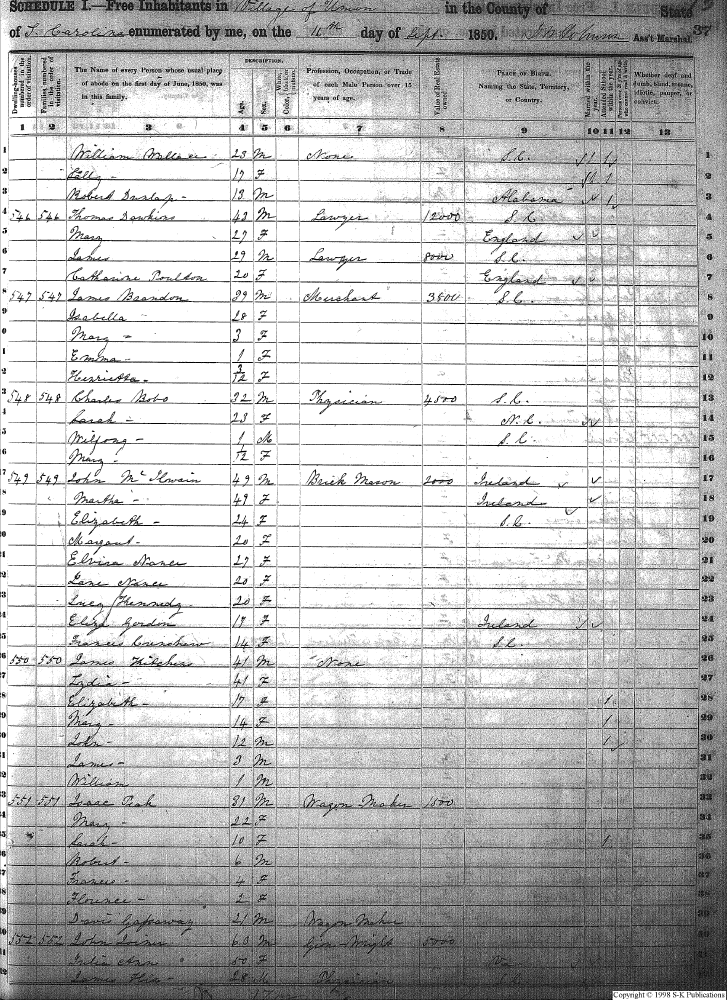 SCHEDULE I.—Free Inhabitants in Village of Union in the County of State
of S. Carolina enumerated by me, on the 16th day of Sept. 1850. Ass't Marshal. 37
Dwelling-houses numbered in the order of visitation. Families numbered in the order of visitation. The Name of every Person whose usual place of abode on the first day of June, 1850, was in this family. DESCRIPTION. Age. Sex. Color, Profession, Occupation, or Trade of each Male Person over 15 years of age. Value of Real Estate owned PLACE OF BIRTH. Naming the State, Territory, or Country. Married within the year. Whether deaf and dumb, blind, insane, idiotic, pauper, or convict.
1 2 3 4 5 6 7 8 9 10 11 12 13
1 William Wallace 23 M None S.C. 1 1 1
2 17 F 1 1 2
3 Robert Dunlap 13 M Alabama 1 3
546 546 Thomas Dawkins 43 M Lawyer 12000 S.C. 4
5 Mary 27 F England 5
6 James 29 M Lawyer 8000 S.C. 6
7 Catharine Poulton 20 F England 7
547 547 James Brandon 39 M Merchant 3500 S.C. 8
9 Isabella 28 F 9
Mary 3 F 10
Emma 1 F 11
Henrietta 3/12 F 12
548 548 Charles Bobo 32 M Physician 4500 S.C. 13
Sarah 23 F N.C. 14
5 Wilfong 1 M S.C. 15
6 Mary /12 F 16
549 549 John McIlwain 49 M Brick Mason 2000 Ireland 17
8 Martha 49 F Ireland 18
9 Elizabeth 24 F S.C. 19
Margaret 20 F 20
Elvira Nance 27 F 21
Jane Nance 20 F 22
Lucy Kennedy 20 F 23
Eliza Gordon 18 F Ireland 24
Francis Crenshaw 14 F S.C. 25
550 550 James Kitchens 41 M None 26
Lydia 41 F 27
Elizabeth 17 F 1 28
Mary 14 F 1 29
John 12 M 1 30
James 3 M 31
William 1 M 32
551 551 Isaac Peak 31 M Wagon Maker 1500 33
Mary 22 F
Sarah 10 F 1 35
Robert 6 M
Francis 4 F
Florence 2 F
Davis Gassaway 21 M Wagon Maker
552 552 John Joiner 60 M Gin-Wright 5000
Julia Ann 50 F Va
James Hix 28 M Physician S.C.
Copyright © 1998 S-K Publications